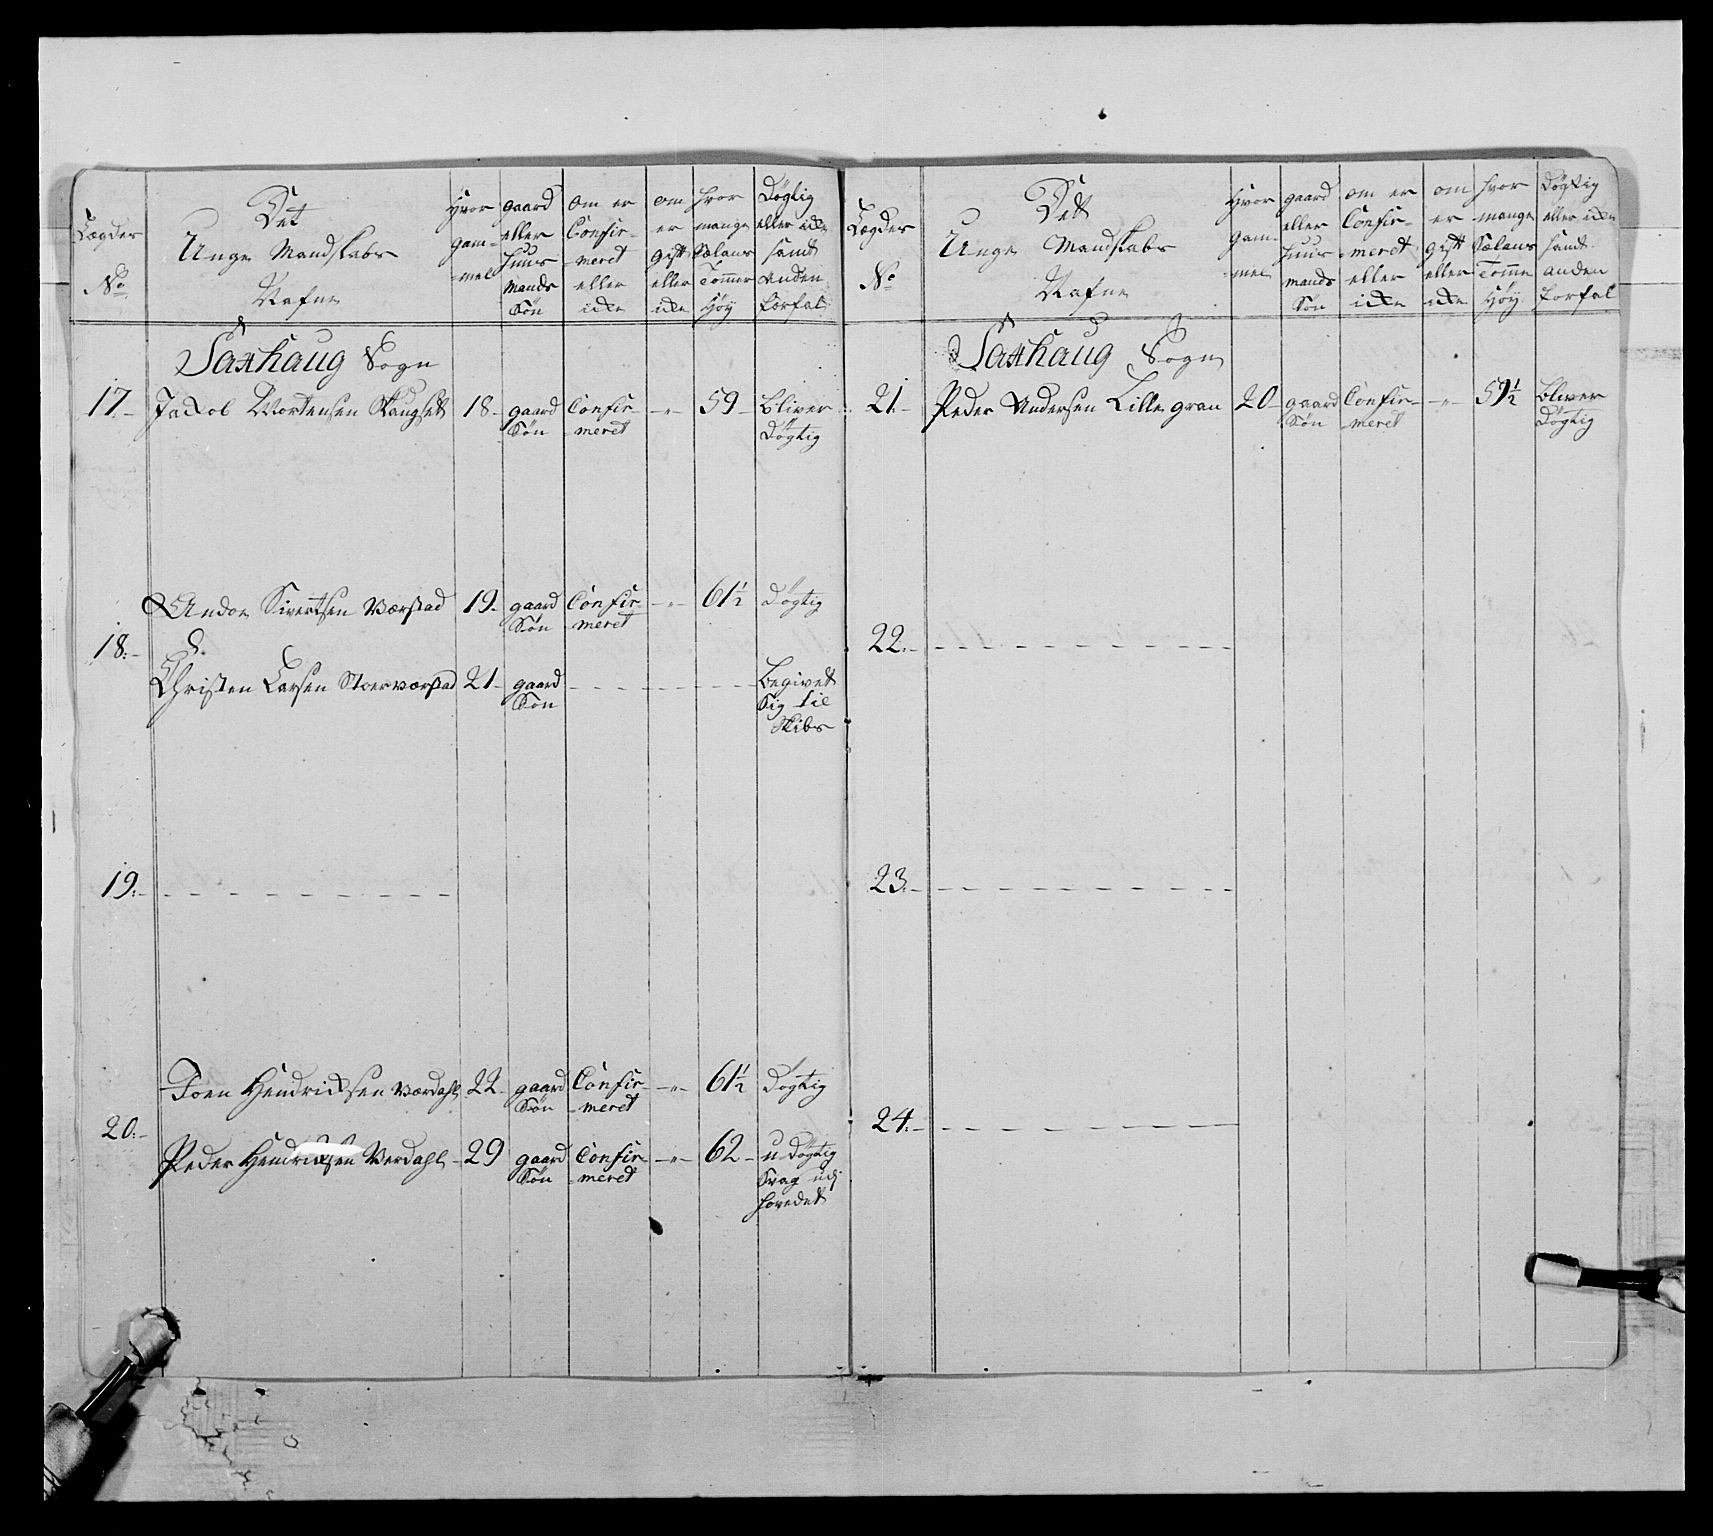 Lægder No
Det Unge Mandskabs Nafne
Hvor gam= =mel
gaard eller Huus mands Søn
om er Confir= =meret eller icke
om er gift eller icke
hvor mange Sælans Tommer Høy
Døgtig eller icke samt anden forfal
Saxhaug Sogn
17. Jackob Mortensen Kaugset 18 gaard Søn Confir= =meret -"- 59 bliver Døgtig
18. Andon Sivertsen Værstad 19. gaard Søn Confir= =meret -"- 61 1/2 Døgtig
Christen Larsen Stoerværstad 21 gaard Søn begivet Sig til Skibs
19.
20. Joen Hendricksen Værdahl 22 gaard Søn Confir= =meret -"- 61 1/2 Døgtig
Peder Hendricksen Verdahl 29 gaard Søn Confir= =meret -"- 62 u-Døgtig Svag udj hovedet
Lægder No
Dett Unge Mandskabs Nafne
Hvor gam= =mel
gaard eller Huus mands Søn
om er Confir= =meret eller icke
om er gift eller icke
hvor mange Sælans Tomme Høy
Døgtig eller icke samt anden forfal
Saxhaug Sogn
21. Peder Andersen Lille gran 20 gaard Søn Confir= =meret -"- 59 1/2 bliver Døgtig
22.
23.
24.